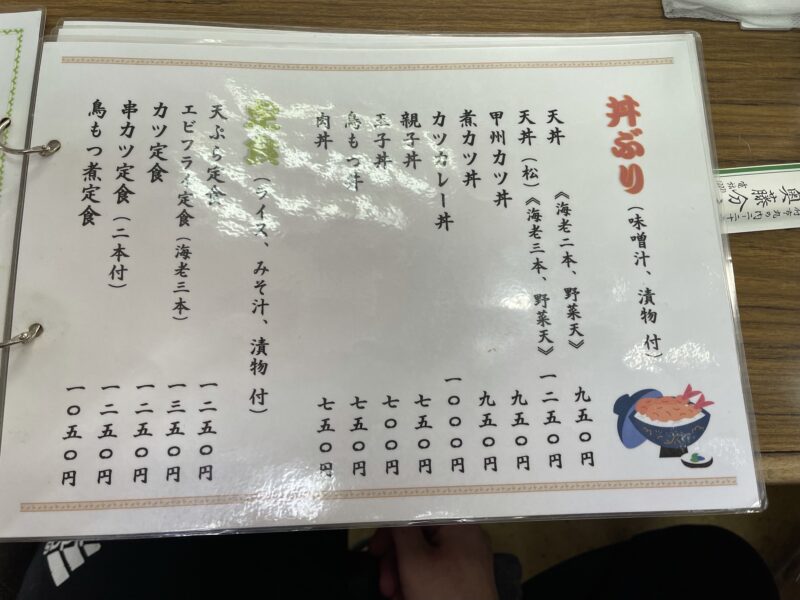 丼ぶり (味噌汁、漬物 付)
天丼 《海老二本、野菜天》 九五〇円
天丼(松)《海老三本、野菜天》 一二五〇円
甲州カツ丼 九五〇円
煮カツ丼 九五〇円
カツカレー丼 一〇〇〇円
親子丼 七五〇円
玉子丼 七〇〇円
鳥もつ丼 七五〇円
肉丼 七五〇円
定食 (ライス、みそ汁、漬物 付)
天ぷら定食 一二五〇円
エビフライ定食(海老三本) 一三五〇円
カツ定食 一二五〇円
串カツ定食(二本付) 一二五〇円
鳥もつ煮定食 一〇五〇円
奥藤 分